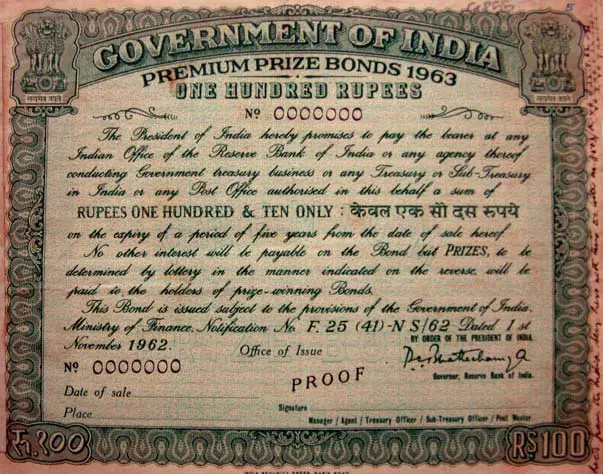 सत्यमेव जयते
सत्यमेव जयते
GOVERNMENT OF INDIA
PREMIUM PRIZE BONDS 1963
ONE HUNDRED RUPEES
Nº 0000000
The President of India hereby promises to pay the bearer at any
Indian Office of the Reserve Bank of India or any agency thereof
conducting Government treasury business or any Treasury or Sub-Treasury
in India or any Post Office authorised in this behalf a sum of
RUPEES ONE HUNDRED & TEN ONLY : केवल एक सौ दस रूपये
on the expiry of a period of five years from the date of sale hereof.
No other interest will be payable on the Bond but PRIZES, to be
determined by lottery in the manner indicated on the reverse, will be
paid to the holders of prize-winning Bonds.
This Bond is issued subject to the provisions of the Government of India,
Ministry of Finance, Notification No. F. 25 (41)-N S/62 Dated 1st
November 1962.
BY ORDER OF THE PRESIDENT OF INDIA
Office of Issue
Nº 0000000
PROOF
Governor, Reserve Bank of India.
Date of sale
Place
Signature
Manager / Agent / Treasury Officer / Sub-Treasury Officer / Post Master
रु.१००
RS 100